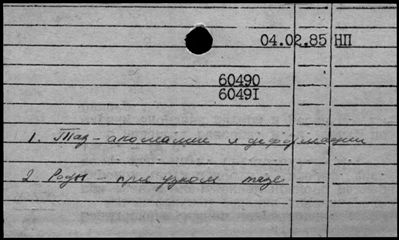 04.02.85 НП
60490
6049I
1. Таз - аномалии и деформации
2 Роды - при узком тазе